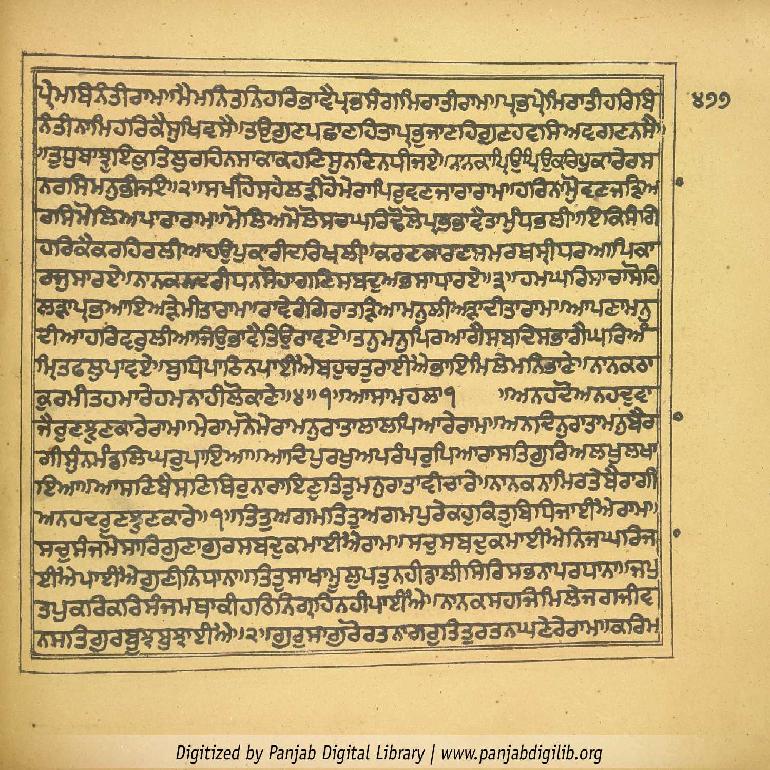 ਪ੍ਰੇਮਾਬੇਨੰਤੀਰਾਮਾ॥ਮੈਮਨਿਤਨਿਹਰਿਭਾਵੈਪ੍ਰਭਸੰਗਮਿਰਾਤੀਰਾਮਾ॥ਪ੍ਰਭਪ੍ਰੇਮਿਰਾਤੀਹਰਿਬਿ
ਨੰਤੀਨਾਮਿਹਰਿਕੈਸੁਖਿਵਸੈ॥ਤਉਗੁਣਪਛਾਣਹਿਤਾਪ੍ਰਭੁਜਾਣਹਿਗੁਣਹਵਸਿਅਵਗਣਨਸੈ
॥ਤੁਧੁਬਾਝੁਇਕੁਤਿਲੁਰਹਿਨਸਾਕਾਕਹਣਿਸੁਨਣਿਨਧੀਜਏ॥ਨਾਨਕਾਪ੍ਰਿਉਪ੍ਰਿਉਕਰਿਪੁਕਾਰੇਰਸ
ਨਰਸਿਮਨੁਭੀਜਏ॥੨॥ਸਖੀਹੋਸਹੇਲੜੀਹੋਮੇਰਾਪਿਰੁਵਣਜਾਰਾਰਾਮਾ॥ਹਰਿਨਾਮੋੁਵਣਜੜਿਆ
ਰਸਿਮੋਲਿਅਪਾਰਾਰਾਮਾ॥ਮੋਲਿਅਮੋਲੋਸਚਘਰਿਢੋਲੋਪ੍ਰਭਭਾਵੈਤਾਮੁੰਧਭਲੀ॥ਇਕਿਸੰਗਿ
ਹਰਿਕੈਕਰਹਿਰਲੀਆਹਉਪੁਕਾਰੀਦਰਿਖਲੀ॥ਕਰਣਕਾਰਣਸਮਰਥਸ੍ਰੀਧਰਆਪਿਕਾ
ਰਜੁਸਾਰਏ॥ਨਾਨਕਨਦਰੀਧਨਸੋਹਾਗਣਿਸਬਦੁਅਭਸਾਧਾਰਏ॥੩॥ਹਮਘਰਿਸਾਚਾਸੋਹਿ
ਲੜਾਪ੍ਰਭਆਇਅੜੇਮੀਤਾਰਾਮਾ॥ਰਾਵੇਰੰਗਿਰਾਤੜਿਆਮਨੁਲੀਅੜਾਦੀਤਾਰਾਮਾ॥ਆਪਣਾਮਨੁ
ਦੀਆਹਰਿਵਰੁਲੀਆਜਿਉਭਾਵੈਤਿਉਰਾਵਏ॥ਤਨੁਮਨੁਪਿਰਆਗੈਸਬਦਿਸਭਾਗੈਘਰਿਅੰ
ਮ੍ਰਿਤਫਲੁਪਾਵਏ॥ਬੁਧਿਪਾਠਿਨਪਾਈਐਬਹੁਚਤੁਰਾਈਐਭਾਇਮਿਲੈਮਨਿਭਾਣੇ॥ਨਾਨਕਠਾ
ਕੁਰਮੀਤਹਮਾਰੇਹਮਨਾਹੀਲੋਕਾਣੇ॥੪॥੧॥ਆਸਾਮਹਲਾ੧ ॥ਅਨਹਦੋਅਨਹਦੁਵਾ
ਜੈਰੁਣਝੁਣਕਾਰੇਰਾਮਾ॥ਮੇਰਾਮਨੋਮੇਰਾਮਨੁਰਾਤਾਲਾਲਪਿਆਰੇਰਾਮਾ॥ਅਨਦਿਨੁਰਾਤਾਮਨੁਬੈਰਾ
ਗੀਸੁੰਨਮੰਡਲਿਘਰੁਪਾਇਆ॥ਆਦਿਪੁਰਖੁਅਪਰੰਪਰੁਪਿਆਰਾਸਤਿਗੁਰਿਅਲਖੁਲਖਾ
ਇਆ॥ਆਸਣਿਬੈਸਣਿਥਿਰੁਨਾਰਾਇਣੁਤਿਤੁਮਨੁਰਾਤਾਵੀਚਾਰੇ॥ਨਾਨਕਨਾਮਿਰਤੇਬੈਰਾਗੀ
ਅਨਹਦਰੁਣਝੁਣਕਾਰੇ॥੧॥ਤਿਤੁਅਗਮਤਿਤੁਅਗਮਪੁਰੇਕਹੁਕਿਤੁਬਿਧਿਜਾਈਐਰਾਮਾ॥
ਸਚੁਸੰਜਮੋਸਾਰਿਗੁਣਾਗੁਰਸਬਦੁਕਮਾਈਐਰਾਮਾ॥ਸਚੁਸਬਦੁਕਮਾਈਐਨਿਜਘਰਿਜਾ
ਈਐਪਾਈਐਗੁਣੀਨਿਧਾਨਾ॥ਤਿਤੁਸਾਖਾਮੂਲੁਪਤੁਨਹੀਡਾਲੀਸਿਰਿਸਭਨਾਪਰਧਾਨਾ॥ਜਪੁ
ਤਪੁਕਰਿਕਰਿਸੰਜਮਥਾਕੀਹਠਿਨਿਗ੍ਰਹਿਨਹੀਪਾਈਐ॥ਨਾਨਕਸਹਜਿਮਿਲੇਜਗਜੀਵ
ਨਸਤਿਗੁਰਬੂਝਬੁਝਾਈਐ॥੨॥ਗੁਰੁਸਾਗਰੋਰਤਨਾਗਰੁਤਿਤੁਰਤਨਘਣੇਰੇਰਾਮਾ॥ਕਰਿਮ
੪੭੭
Digitized by Panjab Digital Library | www.panjabdigilib.org